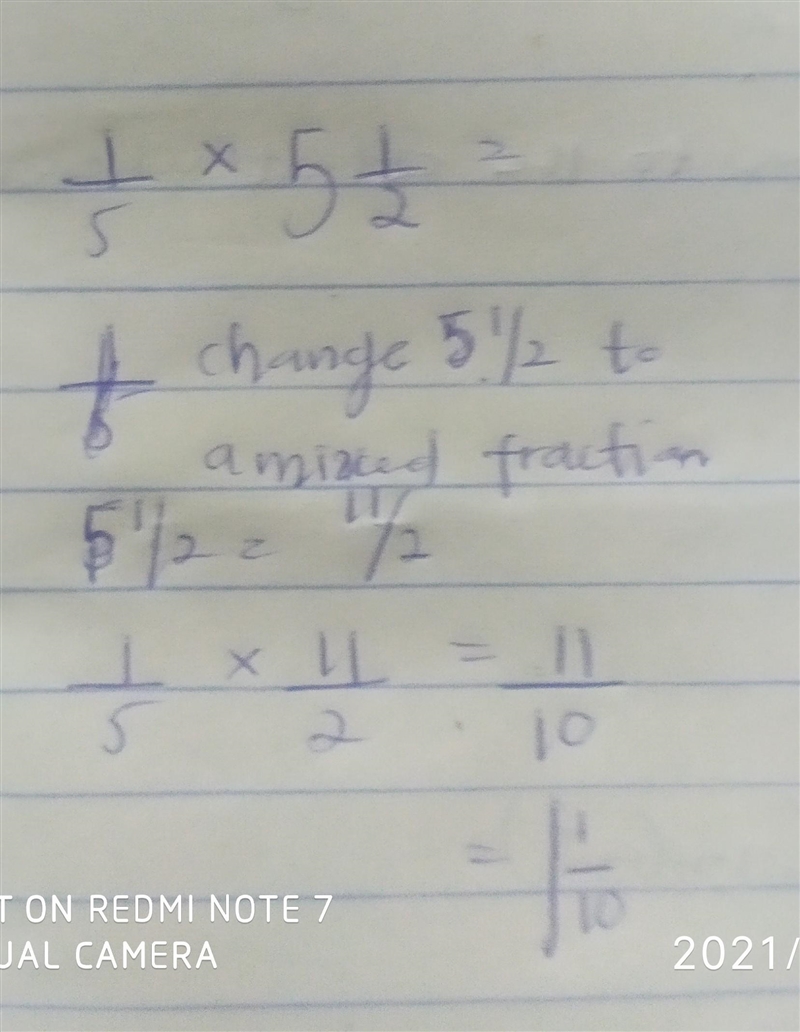 1/5 × 5 1/2 =
change 5 1/2 to
a mixed fraction
5 1/2 = 11/2
1/5 × 11/2 = 11/10
= 1 1/10
T ON REDMI NOTE 7
UAL CAMERA
2021/